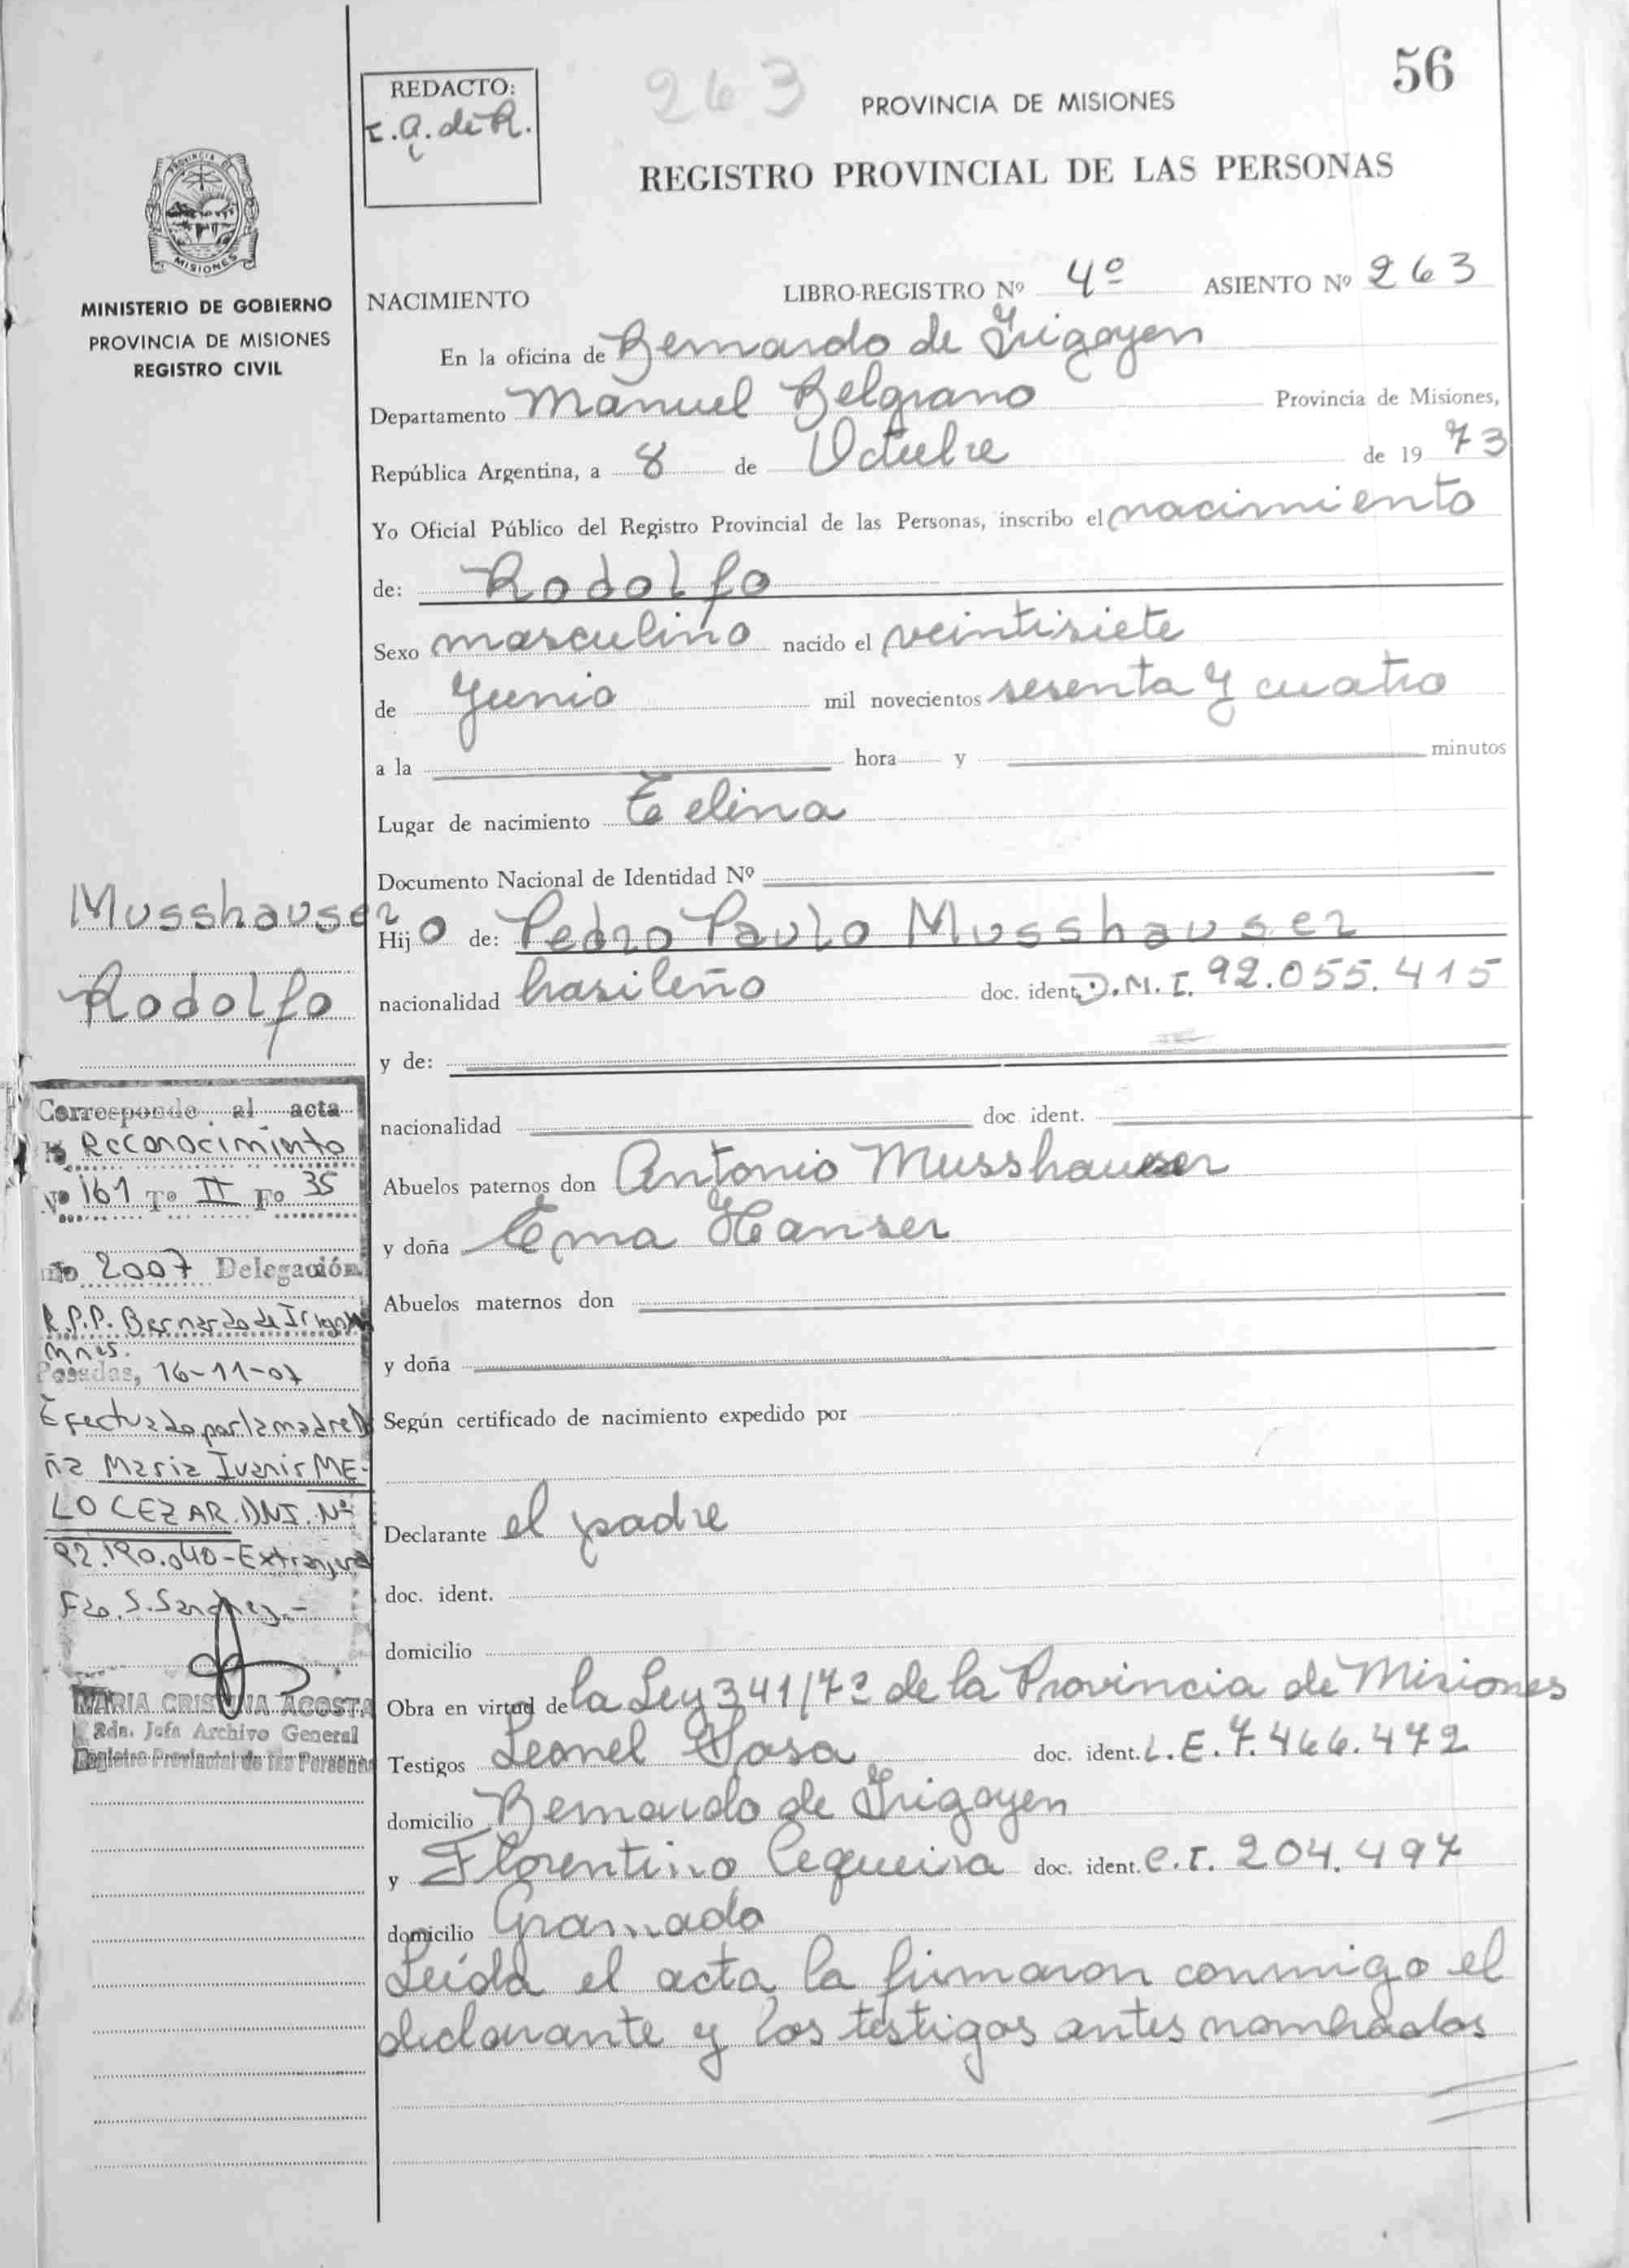 56
263
REDACTO:
PROVINCIA DE MISIONES
REGISTRO PROVINCIAL DE LAS PERSONAS
PROVINCIA DE
MISIONES
MINISTERIO DE GOBIERNO
PROVINCIA DE MISIONES
REGISTRO CIVIL
NACIMIENTO LIBRO-REGISTRO Nº 4º ASIENTO Nº 263
En la oficina de Bernardo de Irigoyen
Departamento Manuel Belgrano Provincia de Misiones,
República Argentina, a 8 de Octubre de 1973
Yo Oficial Público del Registro Provincial de las Personas, inscribo el nacimiento
de: Rodolfo
Sexo masculino nacido el veintisiete
de Junio mil novecientos sesenta y cuatro
a la hora y minutos
Lugar de nacimiento
Documento Nacional de Identidad Nº
Hijo de: Pedro Paulo Musshauser
nacionalidad brasileño doc. ident. D.M.I. 92.055.415
y de:
nacionalidad doc. ident.
Abuelos paternos don Antonio Musshauser
y doña Ema Hanser
Abuelos maternos don
y doña
Según certificado de nacimiento expedido por
Declarante el padre
doc. ident.
domicilio
Obra en virtud de la Ley 341/72 de la Provincia de Misiones
Testigos Leonel Sosa doc. ident. L.E. 7.466.472
domicilio Bernardo de Irigoyen
y Florentino doc. ident. C.I. 204.497
domicilio Gramado
Leída el acta, la firmaron conmigo el
declarante y los testigos antes nombrados
Musshauser
Rodolfo
Corresponde al acta
Reconocimiento
Nº 161 Tº II Fº 35
año 2007 Delegación
R.P.P. Bernardo de Irigoyen
Mnes.
Posadas, 16-11-07
Efectuado por la madre Do
ña Maria Ivanir ME-
LO CEZAR. DNI. Nº
92.190.040-Extranjera
Fdo. S. Sanchez.-
MARIA CRISTINA ACOSTA
2da. Jefa Archivo General
Registro Provincial de las Personas